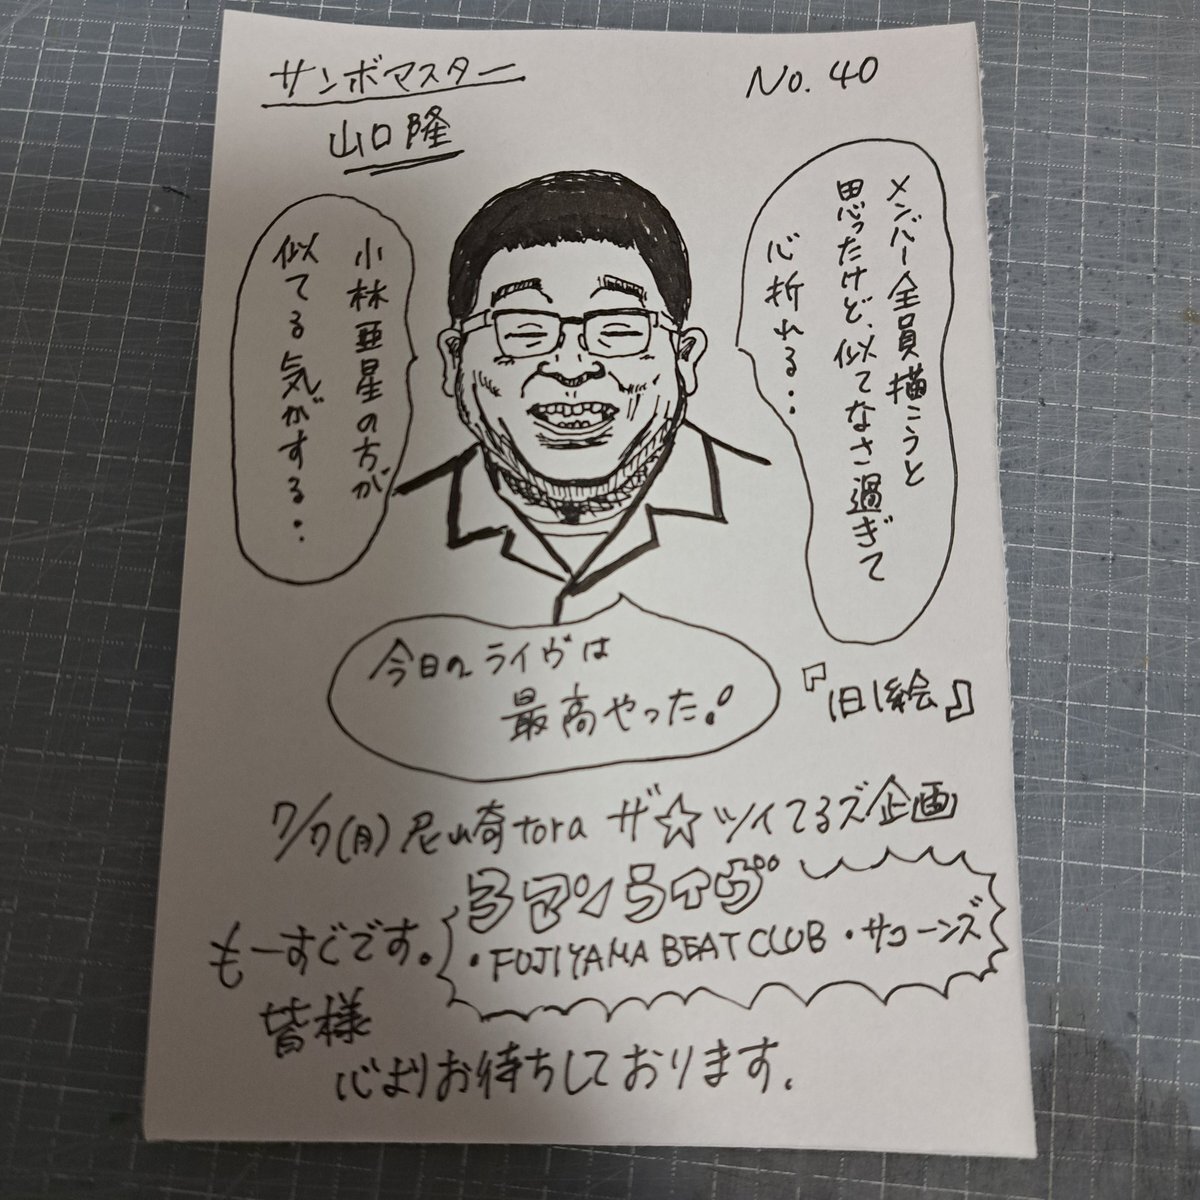 サンボマスター
山口隆
No.40
メンバー全員描こうと
思ったけど、似てなさ過ぎて
心折れる・・
小林亜星の方が
似てる気がする・・
今日のライヴは
最高やった!
『日絵』
7/7(月)尼崎tora ザ☆ツイてるズ企画
ツアマンライヴ
・FUJIYAMA BEAT CLUB ・サコーンズ
もーすぐです。
皆様
心よりお待ちしております。